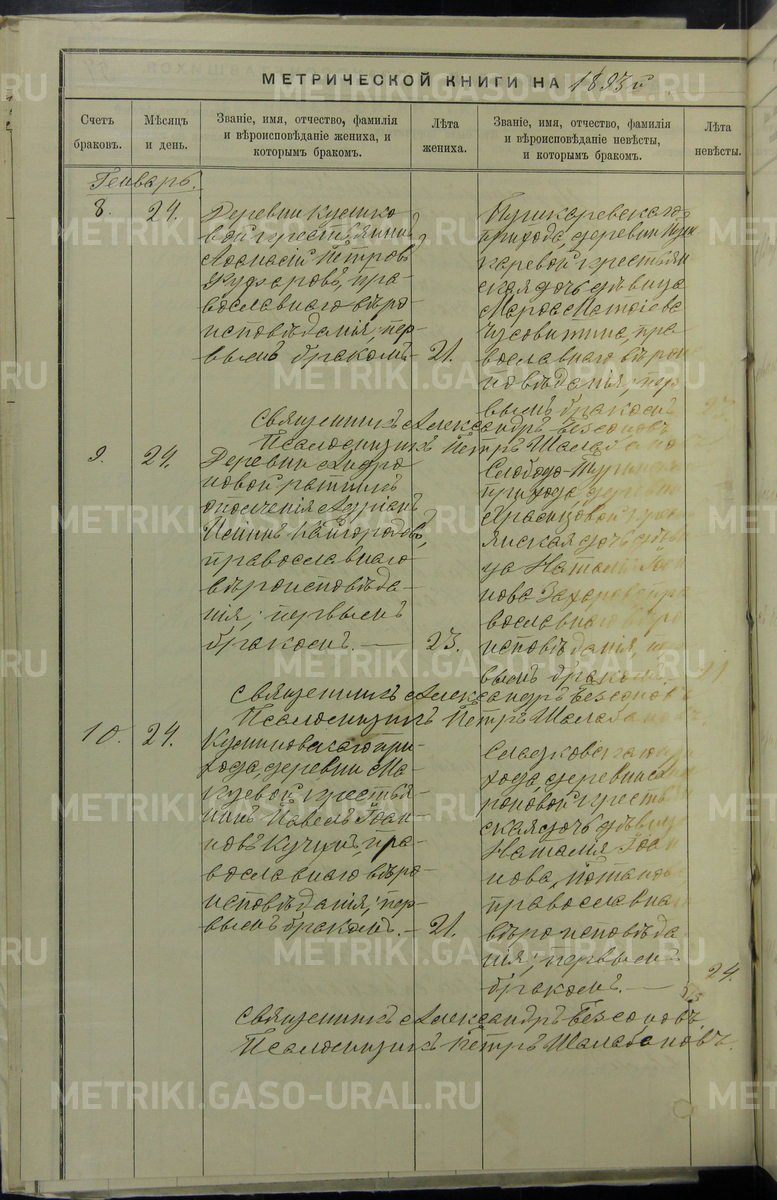 МЕТРИЧЕСКОЙ КНИГИ НА 1893 й
Счетъ браковъ.
Мѣсяцъ и день.
Званіе, имя, отчество, фамилія
и вѣроисповѣданіе жениха, и
которымъ бракомъ.
Лѣта
жениха.
Званіе, имя, отчество, фамилія
и вѣроисповѣданіе невѣсты,
и которымъ бракомъ.
Лѣта
невѣсты.
Генварь.
8.
24.
Деревни
вой

Петров
пра-
вославнаго вѣро-
исповѣданія, пер-
вымъ бракомъ
21.

прихода, деревни
каревой крестьян
ская дочь дѣвица
Марѳа
пра-
вославнаго вѣрои
повѣданія, пер
вымъ бракомъ
Священникъ Александръ Безсоновъ
Псаломщикъ Петръ Шалабанов
9.
24.
Деревни Андро
новой ратникъ
ополченія Адріанъ
Кайгородовъ,
православнаго
вѣроисповѣда-
нія, первымъ
бракомъ. —
23.
Слободо-Туринска
прихода деревни
крест
янская дочь дѣви
ца Наталія Іоан
нова Захарова пра
вославнаго вѣро
исповѣданія, пер
вымъ бракомъ
Священникъ Александръ Безсоновъ
Псаломщикъ Петръ Шалабановъ.
10.
24.
при-
хода, деревни Ма-
куевой крестья-
нинъ Павелъ Іоан-
новъ Кучинъ, пра-
вославнаго вѣро-
исповѣданія, пер-
вымъ бракомъ. —
21.
Сладковскаго при
хода, деревни
роновой крестьян
ская дочь дѣвица
Наталія Іоан
нова, Потапова
православнаго
вѣроисповѣда-
нія, первымъ
бракомъ. —
24.
Священникъ Александръ Безсоновъ
Псаломщикъ Петръ Шалабановъ.
METRIKI.GASO-URAL.RU